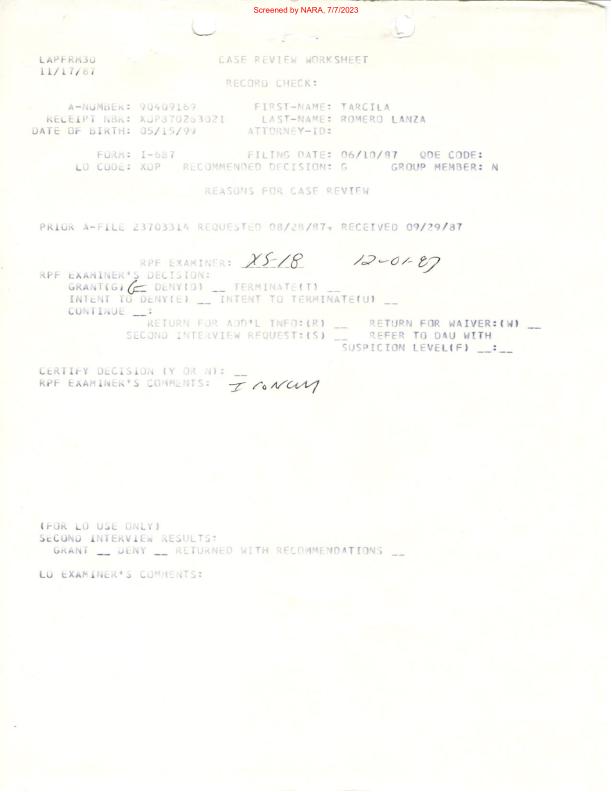 Screened by NARA, 7/7/2023
LAPFRM30 CASE REVIEW WORKSHEET
11/17/87
RECORD CHECK:
A-NUMBER: 90409169 FIRST-NAME: TARCILA
RECEIPT NBR: XOP870263021 LAST-NAME: ROMERO LANZA
DATE OF BIRTH: 05/15/99 ATTORNEY-ID:
FORM: I-687 FILING DATE: 06/10/87 QDE CODE:
LO CODE: XOP RECOMMENDED DECISION: G GROUP MEMBER: N
REASONS FOR CASE REVIEW
PRIOR A-FILE 23703314 REQUESTED 08/28/87, RECEIVED 09/29/87
RPF EXAMINER: XS-18 12-01-87
RPF EXAMINER'S DECISION:
GRANT(G) G DENY(D) __ TERMINATE(T) __
INTENT TO DENY(E) __ INTENT TO TERMINATE(U) __
CONTINUE __:
RETURN FOR ADD'L INFO:(R) __ RETURN FOR WAIVER:(W) __
SECOND INTERVIEW REQUEST:(S) __ REFER TO DAU WITH
SUSPICION LEVEL(F) __:__
CERTIFY DECISION (Y OR N): __
RPF EXAMINER'S COMMENTS: I concur
(FOR LO USE ONLY)
SECOND INTERVIEW RESULTS:
GRANT __ DENY __ RETURNED WITH RECOMMENDATIONS __
LO EXAMINER'S COMMENTS: